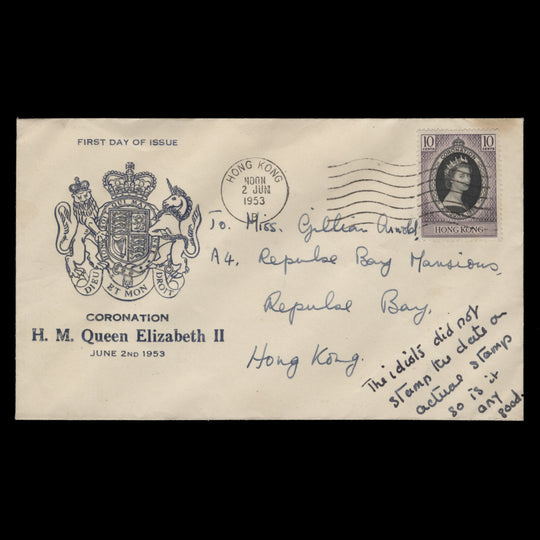 FIRST DAY OF ISSUE
DIEU ET MON DROIT
CORONATION
H. M. Queen Elizabeth II
JUNE 2ND 1953
HONG KONG
NOON
2 JUN
1953
10 CENTS
CORONATION
10 CENTS
HONG KONG
To. Miss. Gillian Arnold,
A4, Repulse Bay Mansions,
Repulse Bay,
Hong Kong.
The idiots did not
stamp the date on
actual stamp
so is it
any
good.